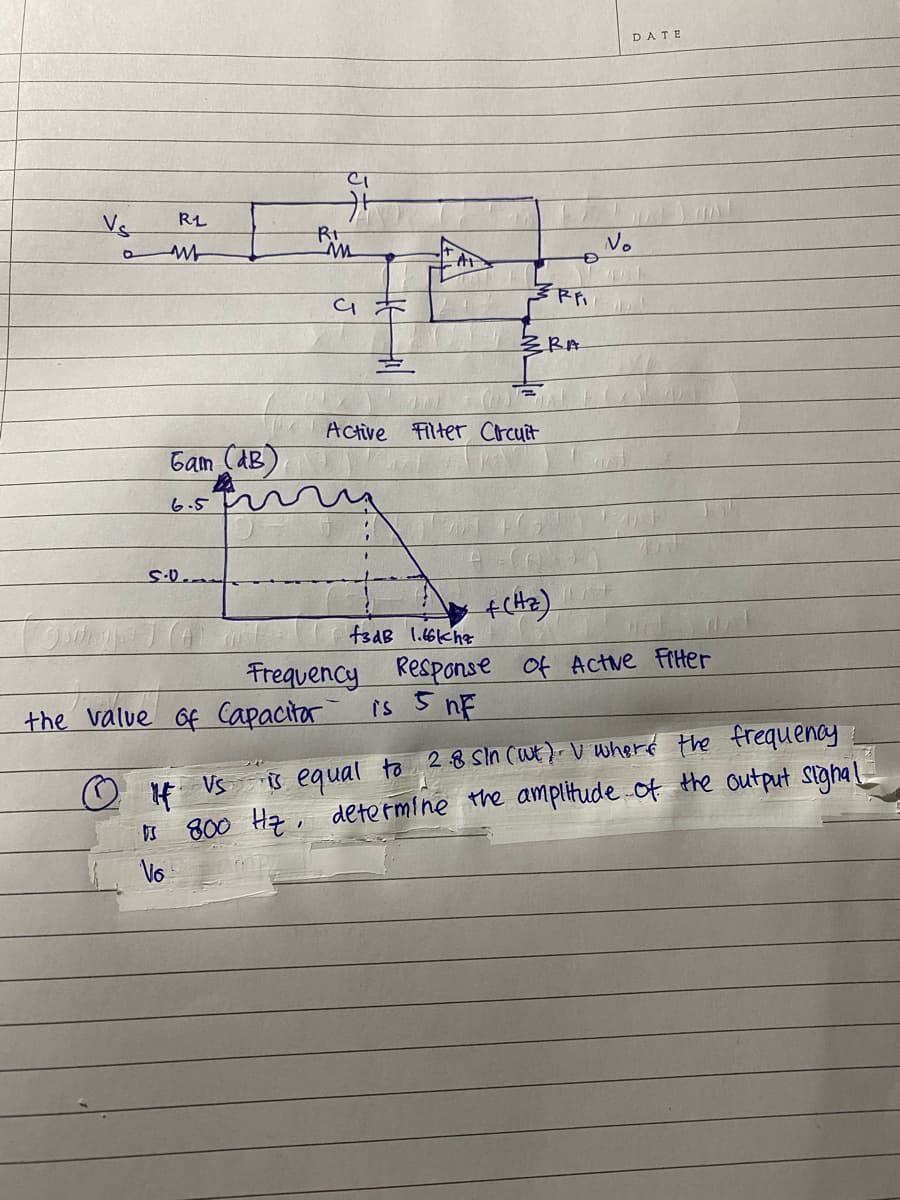 DATE
C1
Vs R1
R1
Vo
+
-
A1
C1
RF1
RA
Active Filter Circuit
Gain (dB)
6.5
5.0
f(Hz)
f3dB 1.66khz
Frequency Response Of Active Filter
the value of Capacitor is 5 nF
① If Vs is equal to 2.8 sin (wt). V where the frequency
is 800 Hz, determine the amplitude of the output signal
Vo